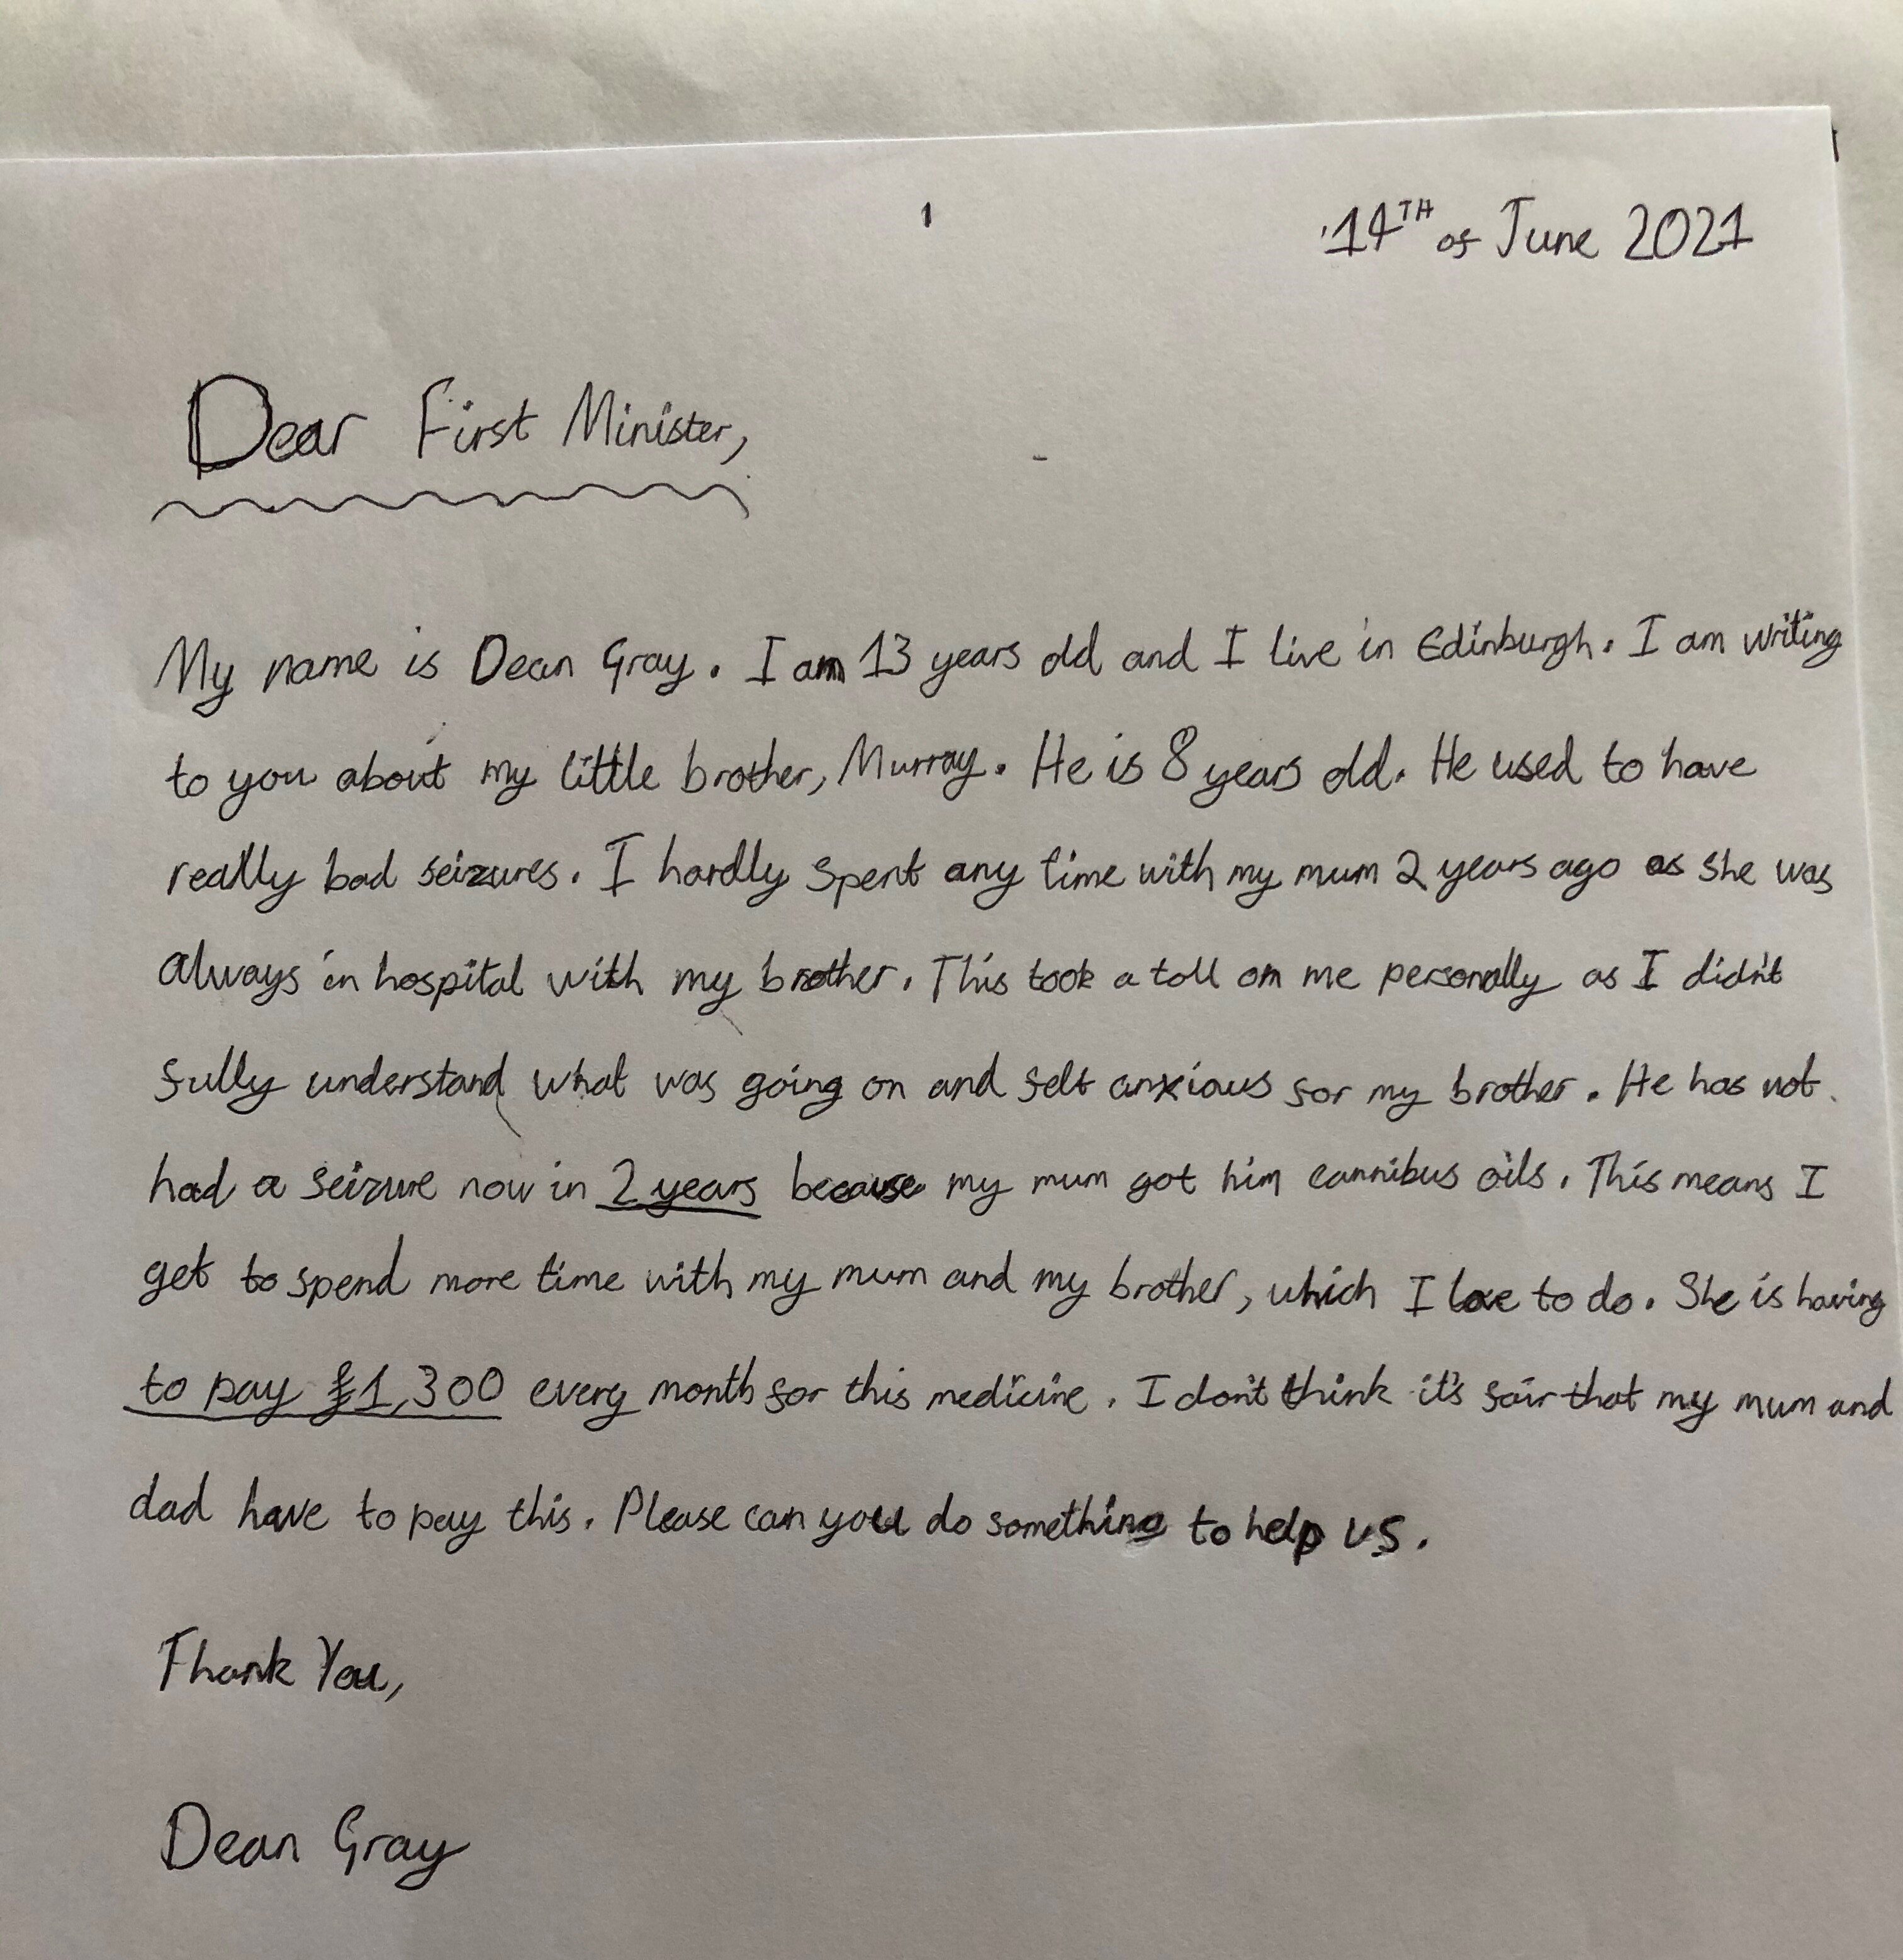 14TH of June 2021
Dear First Minister,
My name is Dean Gray. I am 13 years old and I live in Edinburgh. I am writing
to you about my little brother, Murray. He is 8 years old. He used to have
really bad seizures. I hardly spent any time with my mum 2 years ago as she was
always in hospital with my brother. This took a toll on me personally as I didn't
fully understand what was going on and felt anxious for my brother. He has not
had a seizure now in 2 years because my mum got him cannibus oils. This means I
get to spend more time with my mum and my brother, which I love to do. She is having
to pay £1,300 every month for this medicine. I don't think it's fair that my mum and
dad have to pay this. Please can you do something to help us.
Thank You,
Dean Gray